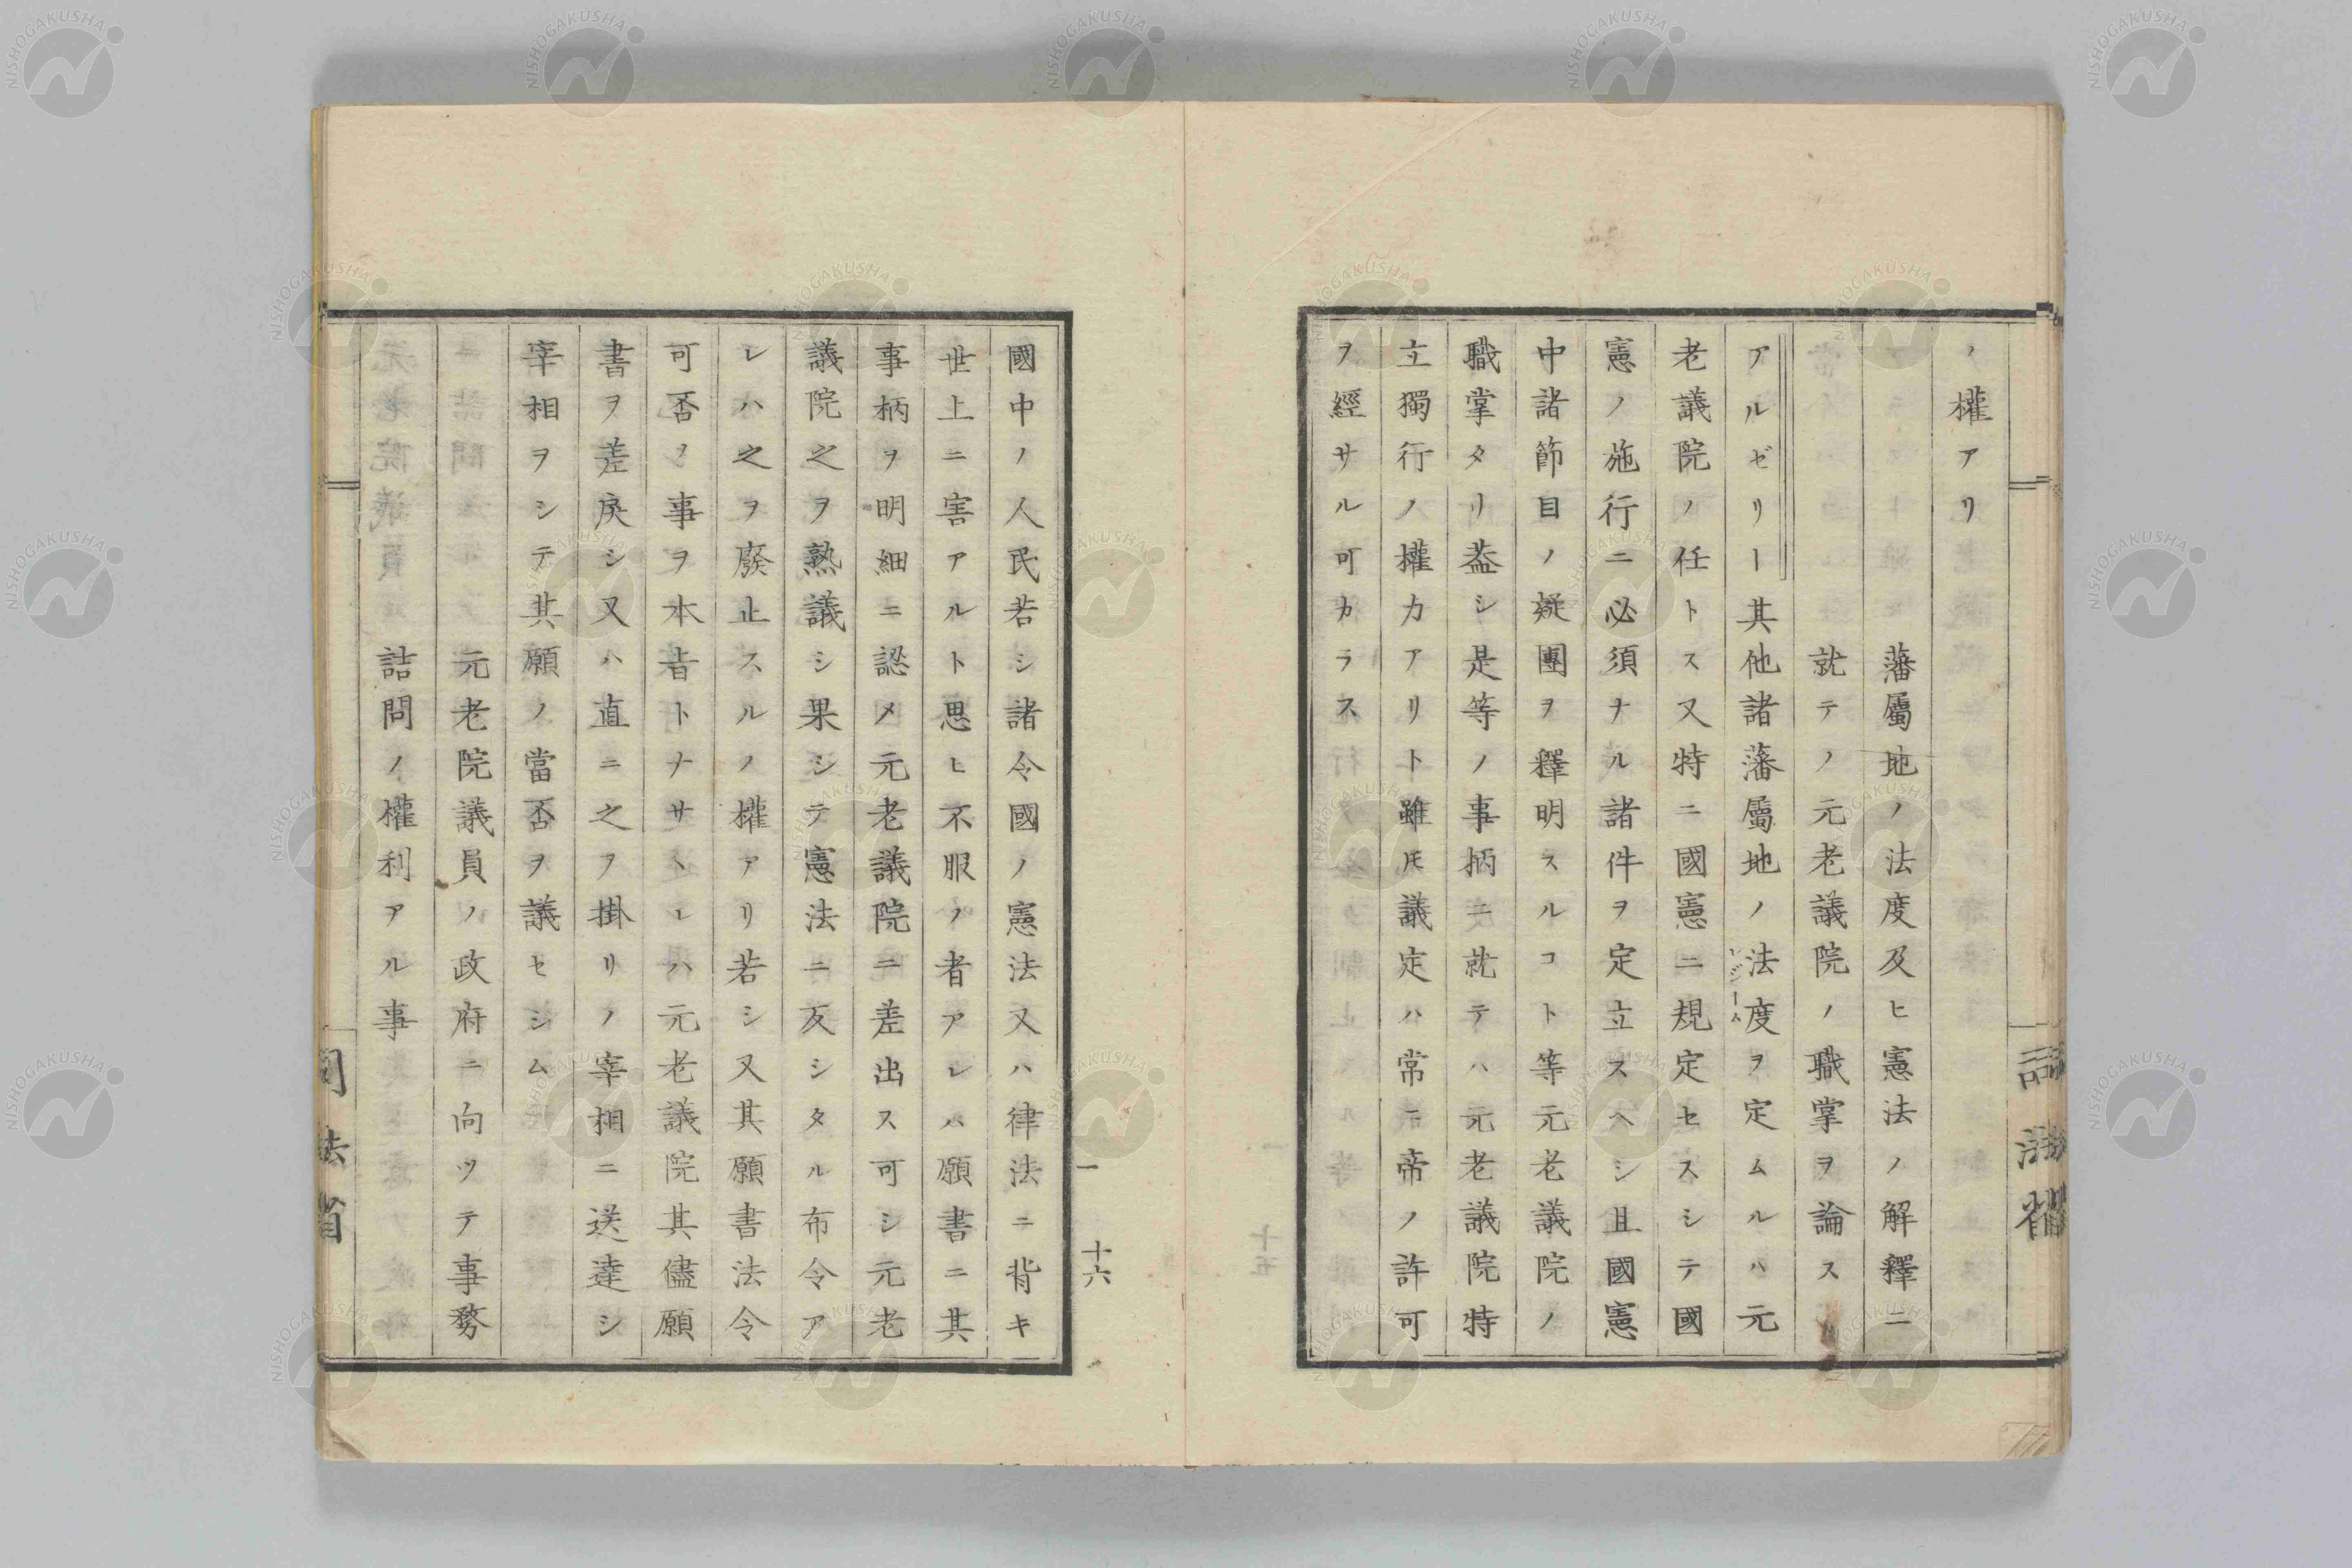 ノ權アリ
藩屬地ノ法度及ヒ憲法ノ解釋ニ
就テノ元老議院ノ職掌ヲ論ス
アルゼリー其他諸藩屬地ノ法度ヲ定ムルハ元
レジーム
老議院ノ任トス又特ニ國憲ニ規定セスシテ國
憲ノ施行ニ必須ナル諸件ヲ定立スヘシ且國憲
中諸節目ノ疑團ヲ釋明スルコト等元老議院ノ
職掌タリ蓋シ是等ノ事柄ニ就テハ元老議院特
立獨行ノ權力アリト雖𪜈議定ハ常ニ帝ノ許可
ヲ經サル可カラス
一 十六
國中ノ人民若シ諸令國ノ憲法又ハ律法ニ背キ
世上ニ害アルト思ヒ不服ノ者アレハ願書ニ其
事柄ヲ明細ニ認メ元老議院ニ差出ス可シ元老
議院之ヲ熟議シ果シテ憲法ニ反シタル布令ア
レハ之ヲ廢止スルノ權アリ若シ又其願書法令
可否ノ事ヲ本旨トナサヽレハ元老議院其儘願
書ヲ差戻シ又ハ直ニ之ヲ掛リノ宰相ニ送達シ
宰相ヲシテ其願ノ當否ヲ議セシム
元老院議員ノ政府ニ向ツテ事務
詰問ノ權利アル事
司法省
NISHOGAKUSHA